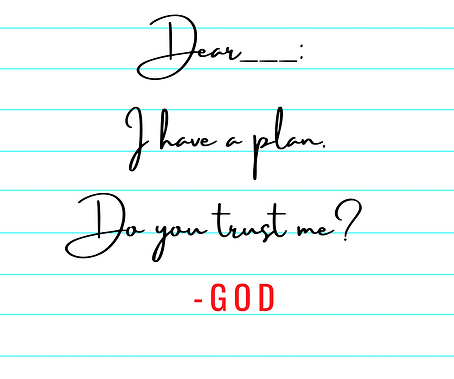 Dear___:
I have a plan.
Do you trust me?
-GOD